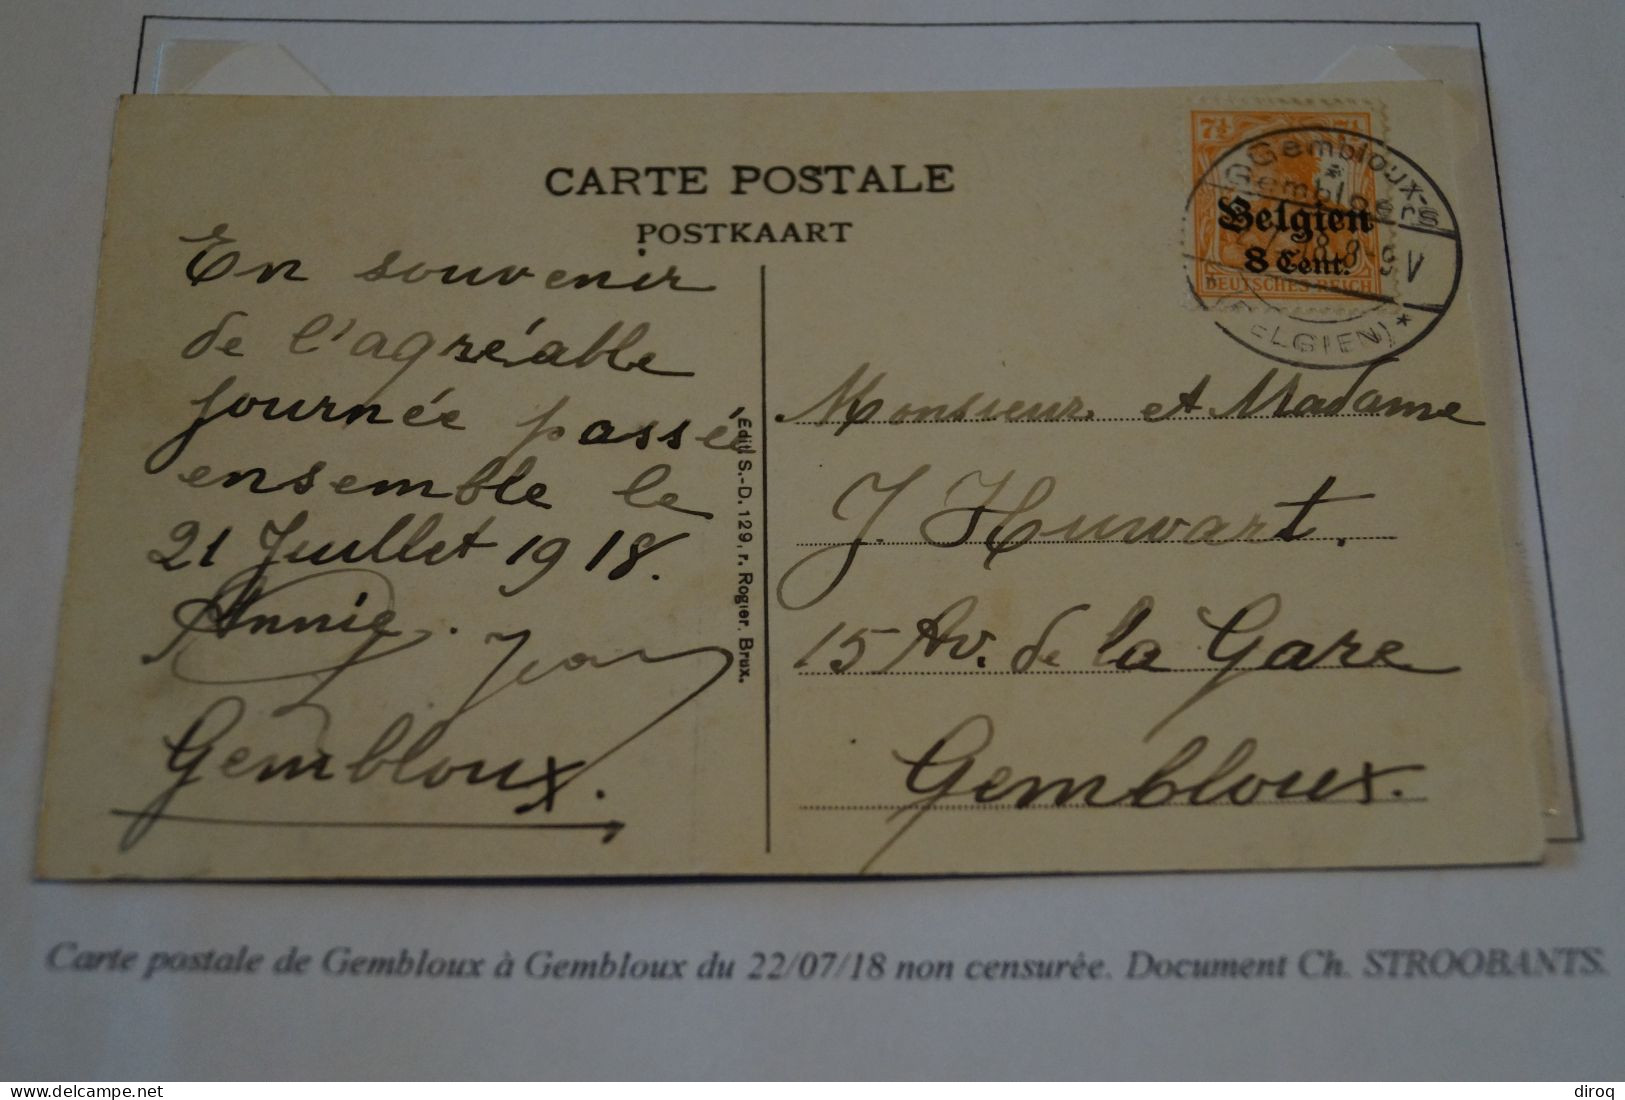 CARTE POSTALE
POSTKAART
7½ 7½
Belgien
8 Cent.
DEUTSCHES REICH
Gembloux-S
Gembloers
8-9V
ELGIEN) *
En souvenir
de l'agréable
journée passée
ensemble le
21 Juillet 1918.
Annie. Jean
Gembloux.
Edit. S.-D. 129, r. Rogier, Brux.
Monsieur et Madame
J. Huwart.
15 Av. de la Gare
Gembloux.
Carte postale de Gembloux à Gembloux du 22/07/18 non censurée. Document Ch. STROOBANTS.
www.delcampe.net
diroq